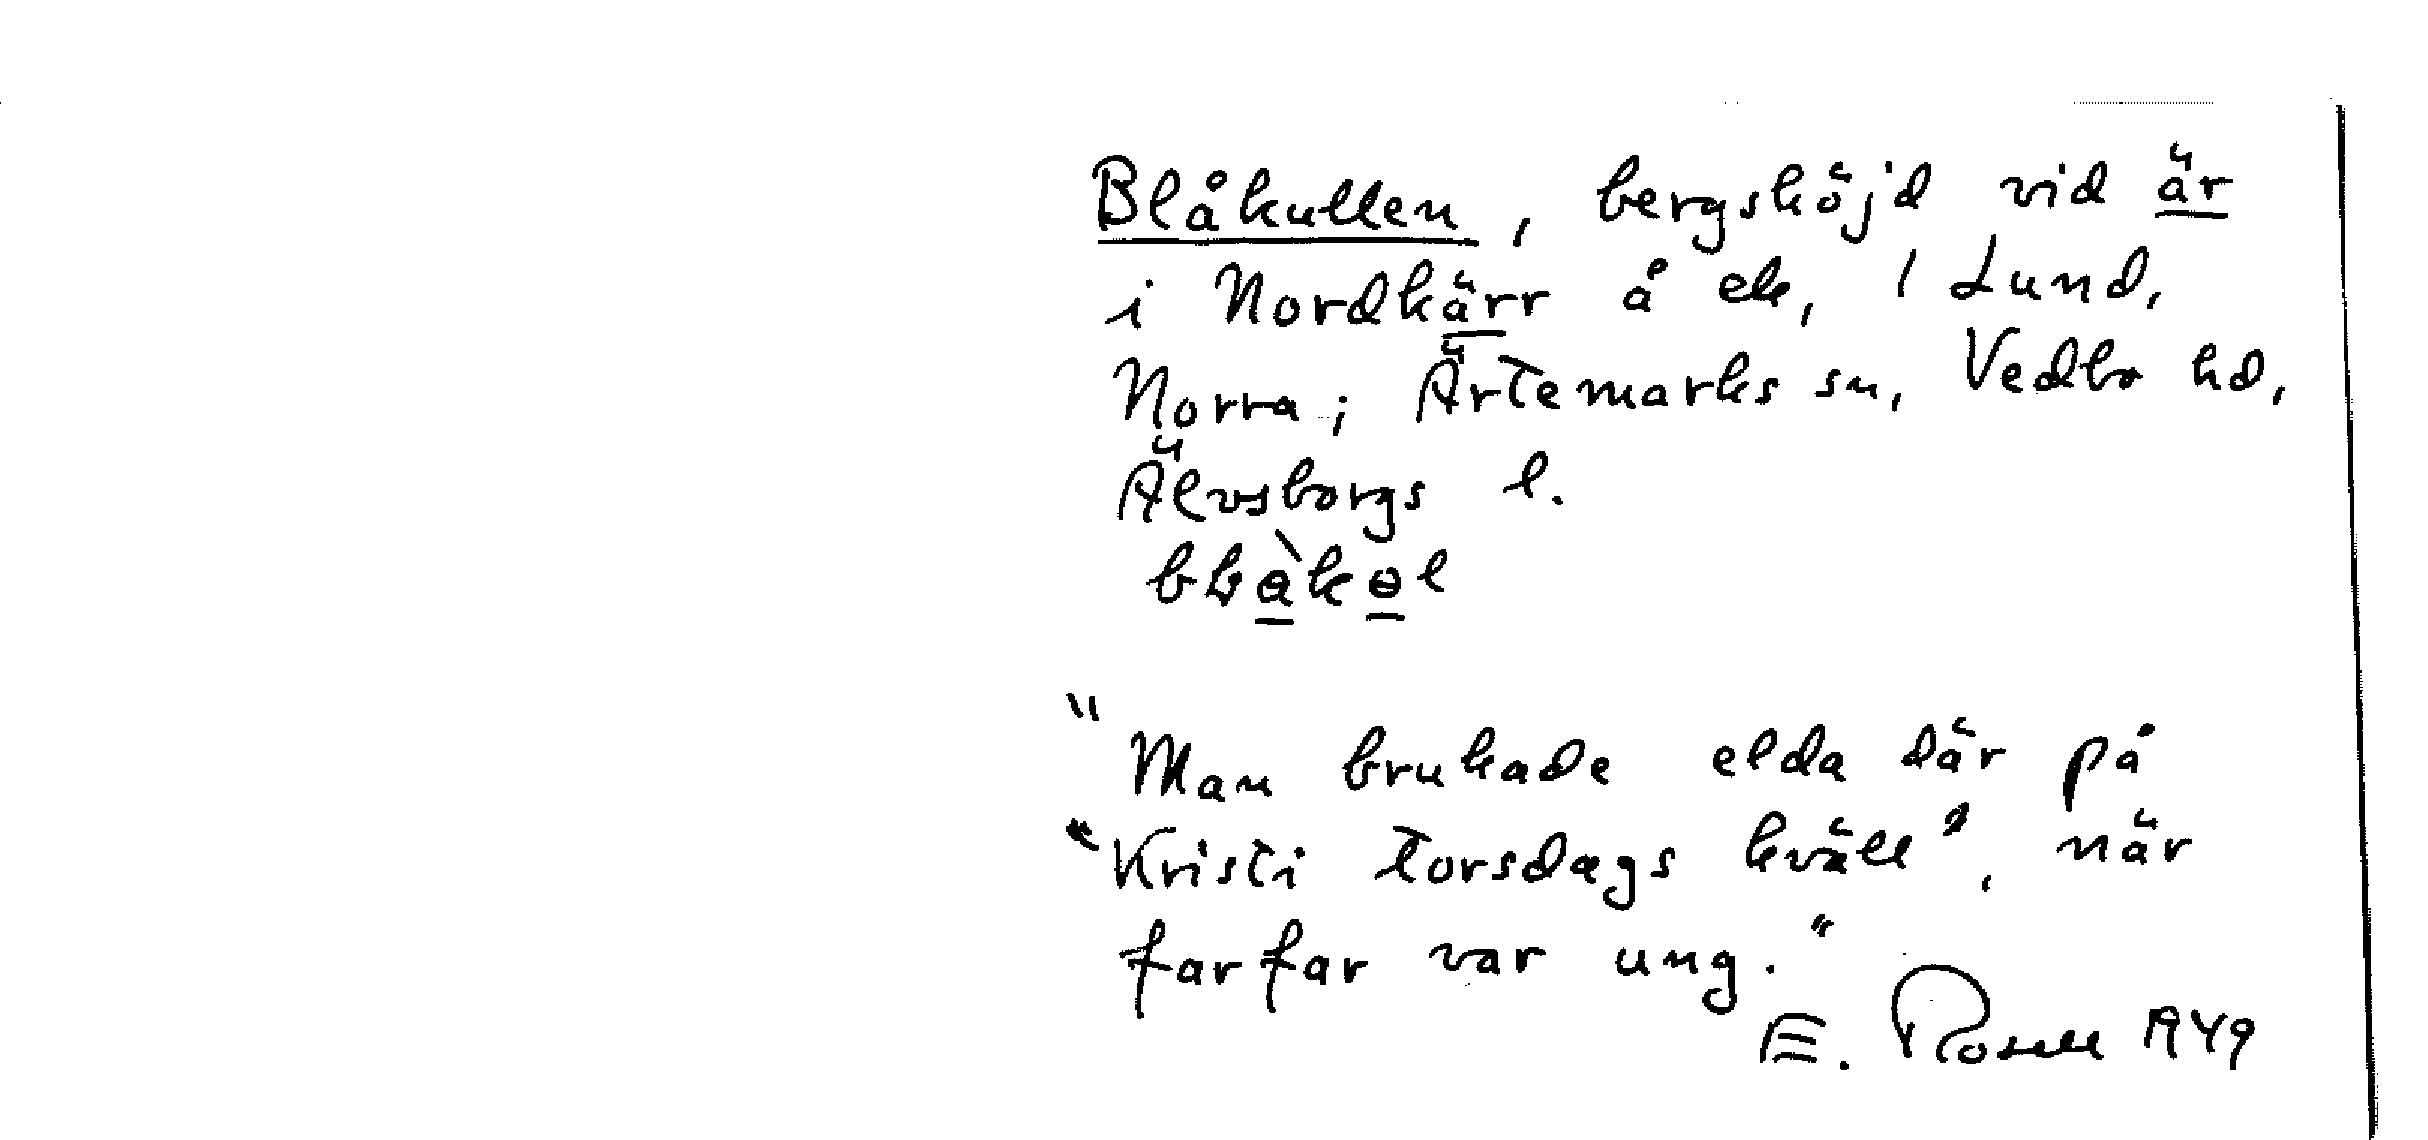 Blåkullen, bergshöjd vid är
i Nordkärr å ek, 1 Lund,
Norra; Ärtemarks sn, Vedbo hd,
Älvsborgs l.
"Man brukade elda där på
"Kristi torsdags kväll", när
farfar var ung."
E. Rosell 1949